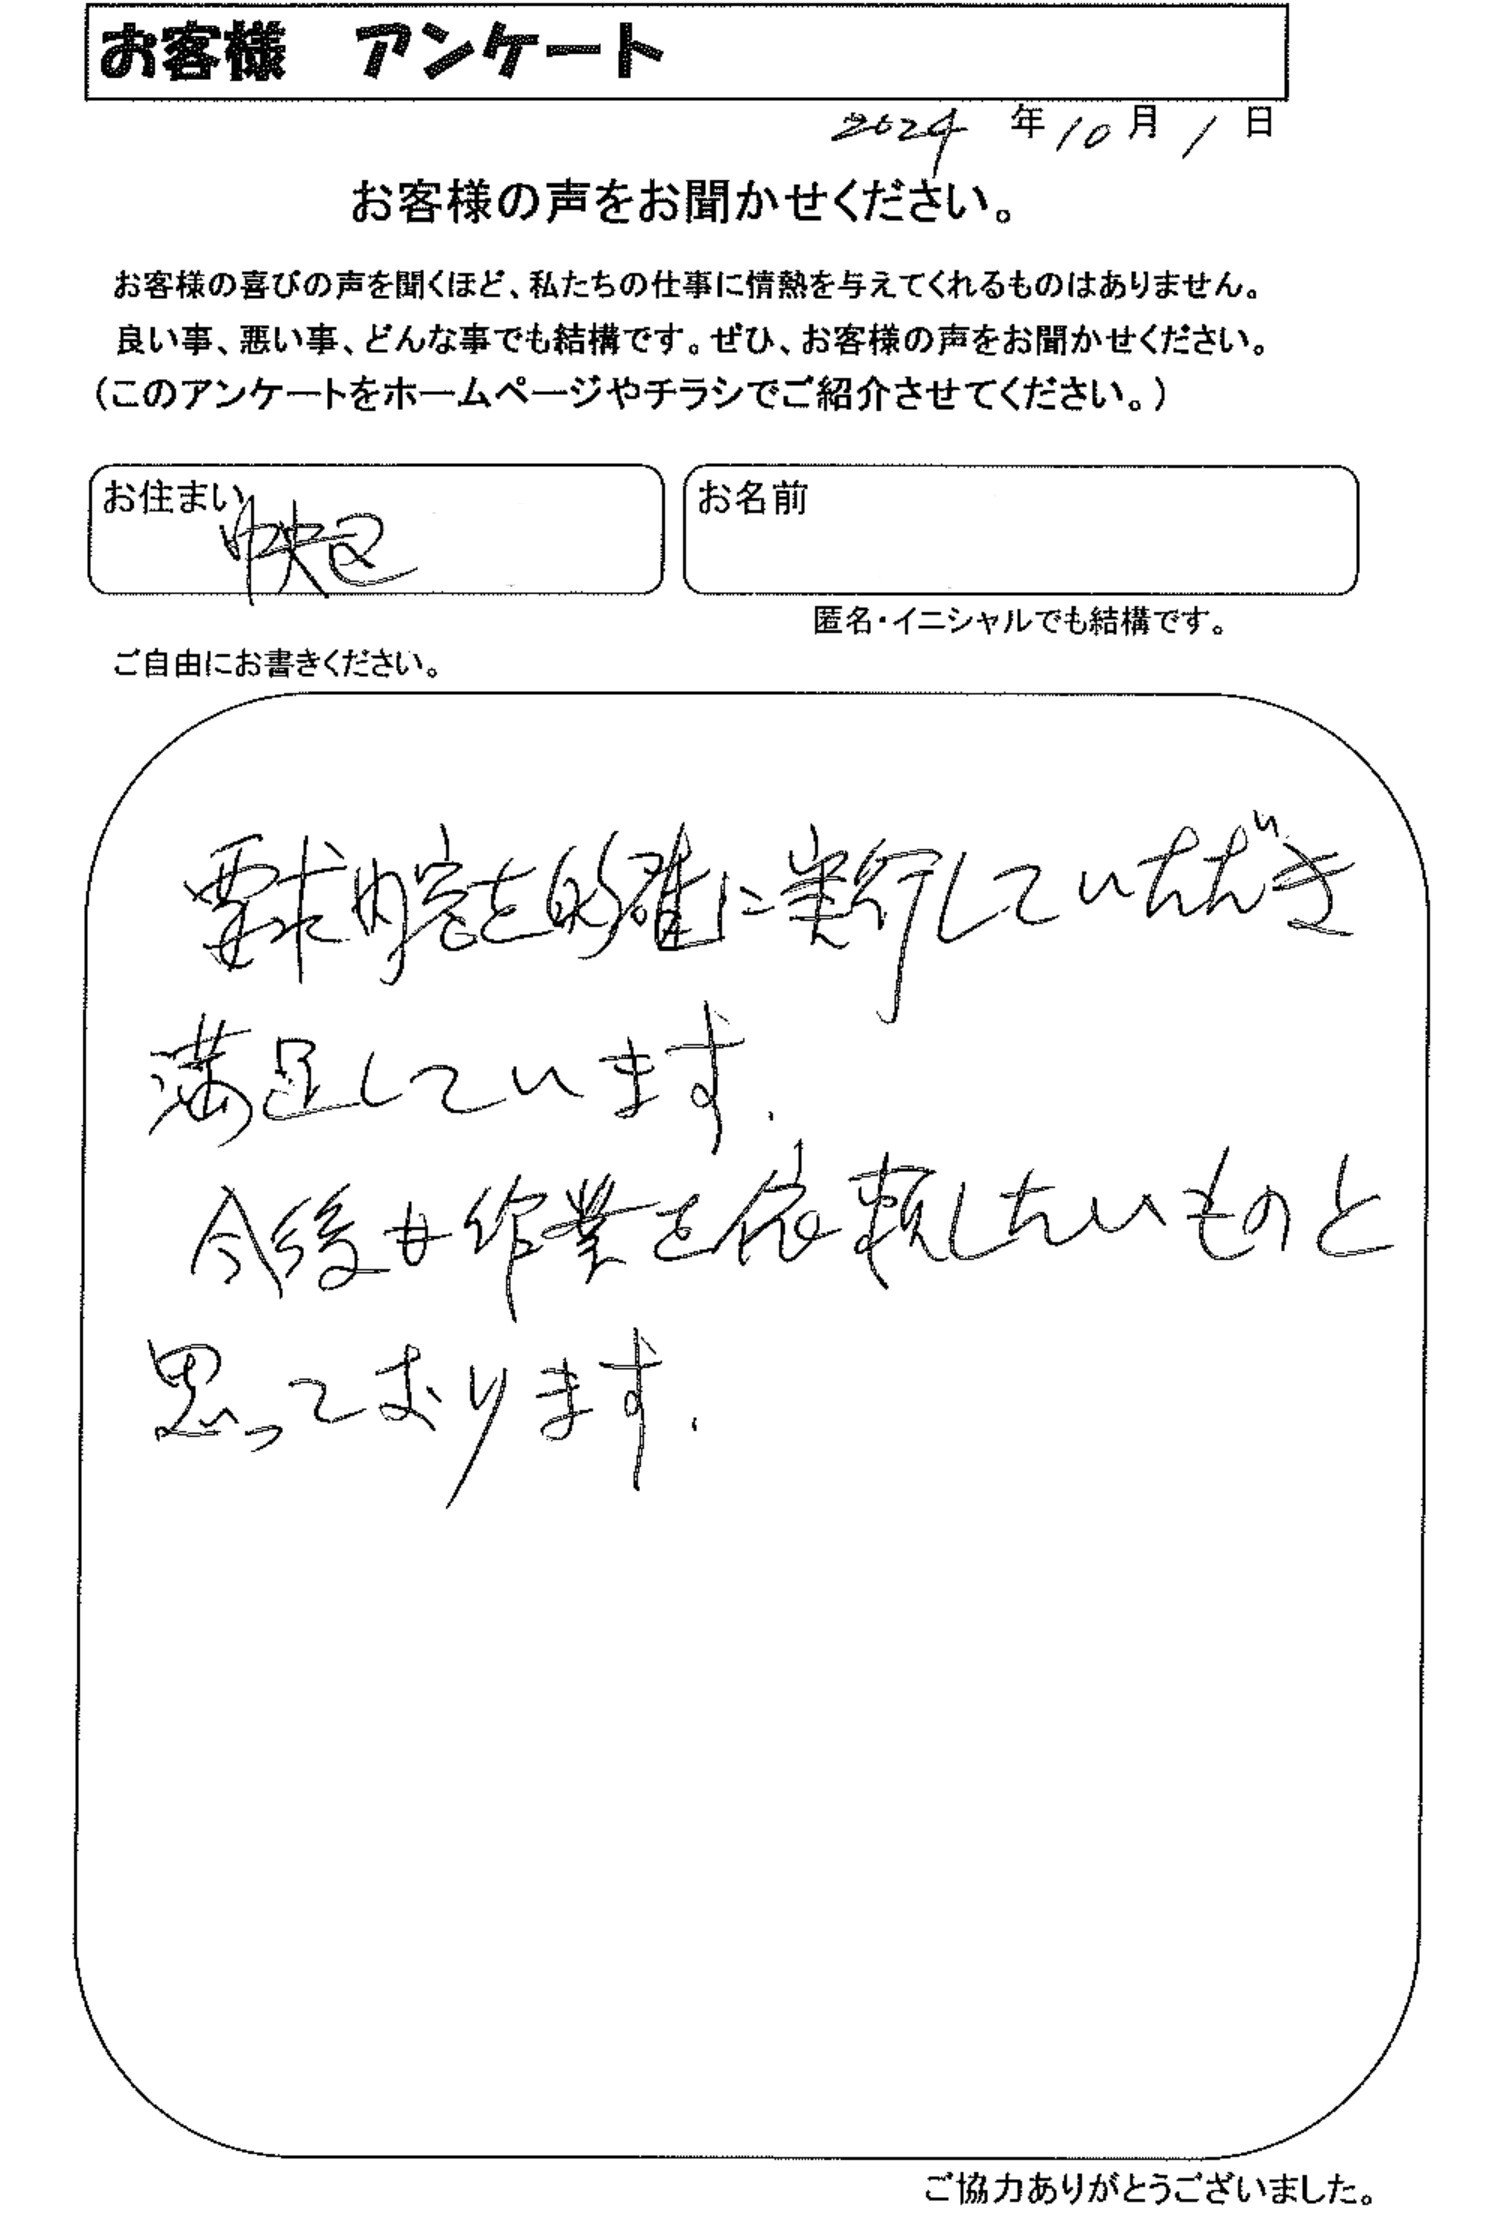 お客様　アンケート
2024 年 10 月 1 日
お客様の声をお聞かせください。
お客様の喜びの声を聞くほど、私たちの仕事に情熱を与えてくれるものはありません。
良い事、悪い事、どんな事でも結構です。ぜひ、お客様の声をお聞かせください。
（このアンケートをホームページやチラシでご紹介させてください。）
お住まい 中央区
お名前
匿名・イニシャルでも結構です。
ご自由にお書きください。
要求内容を的確に実行していただき
満足しています.
今後も作業を依頼したいものと
思っております.
ご協力ありがとうございました。